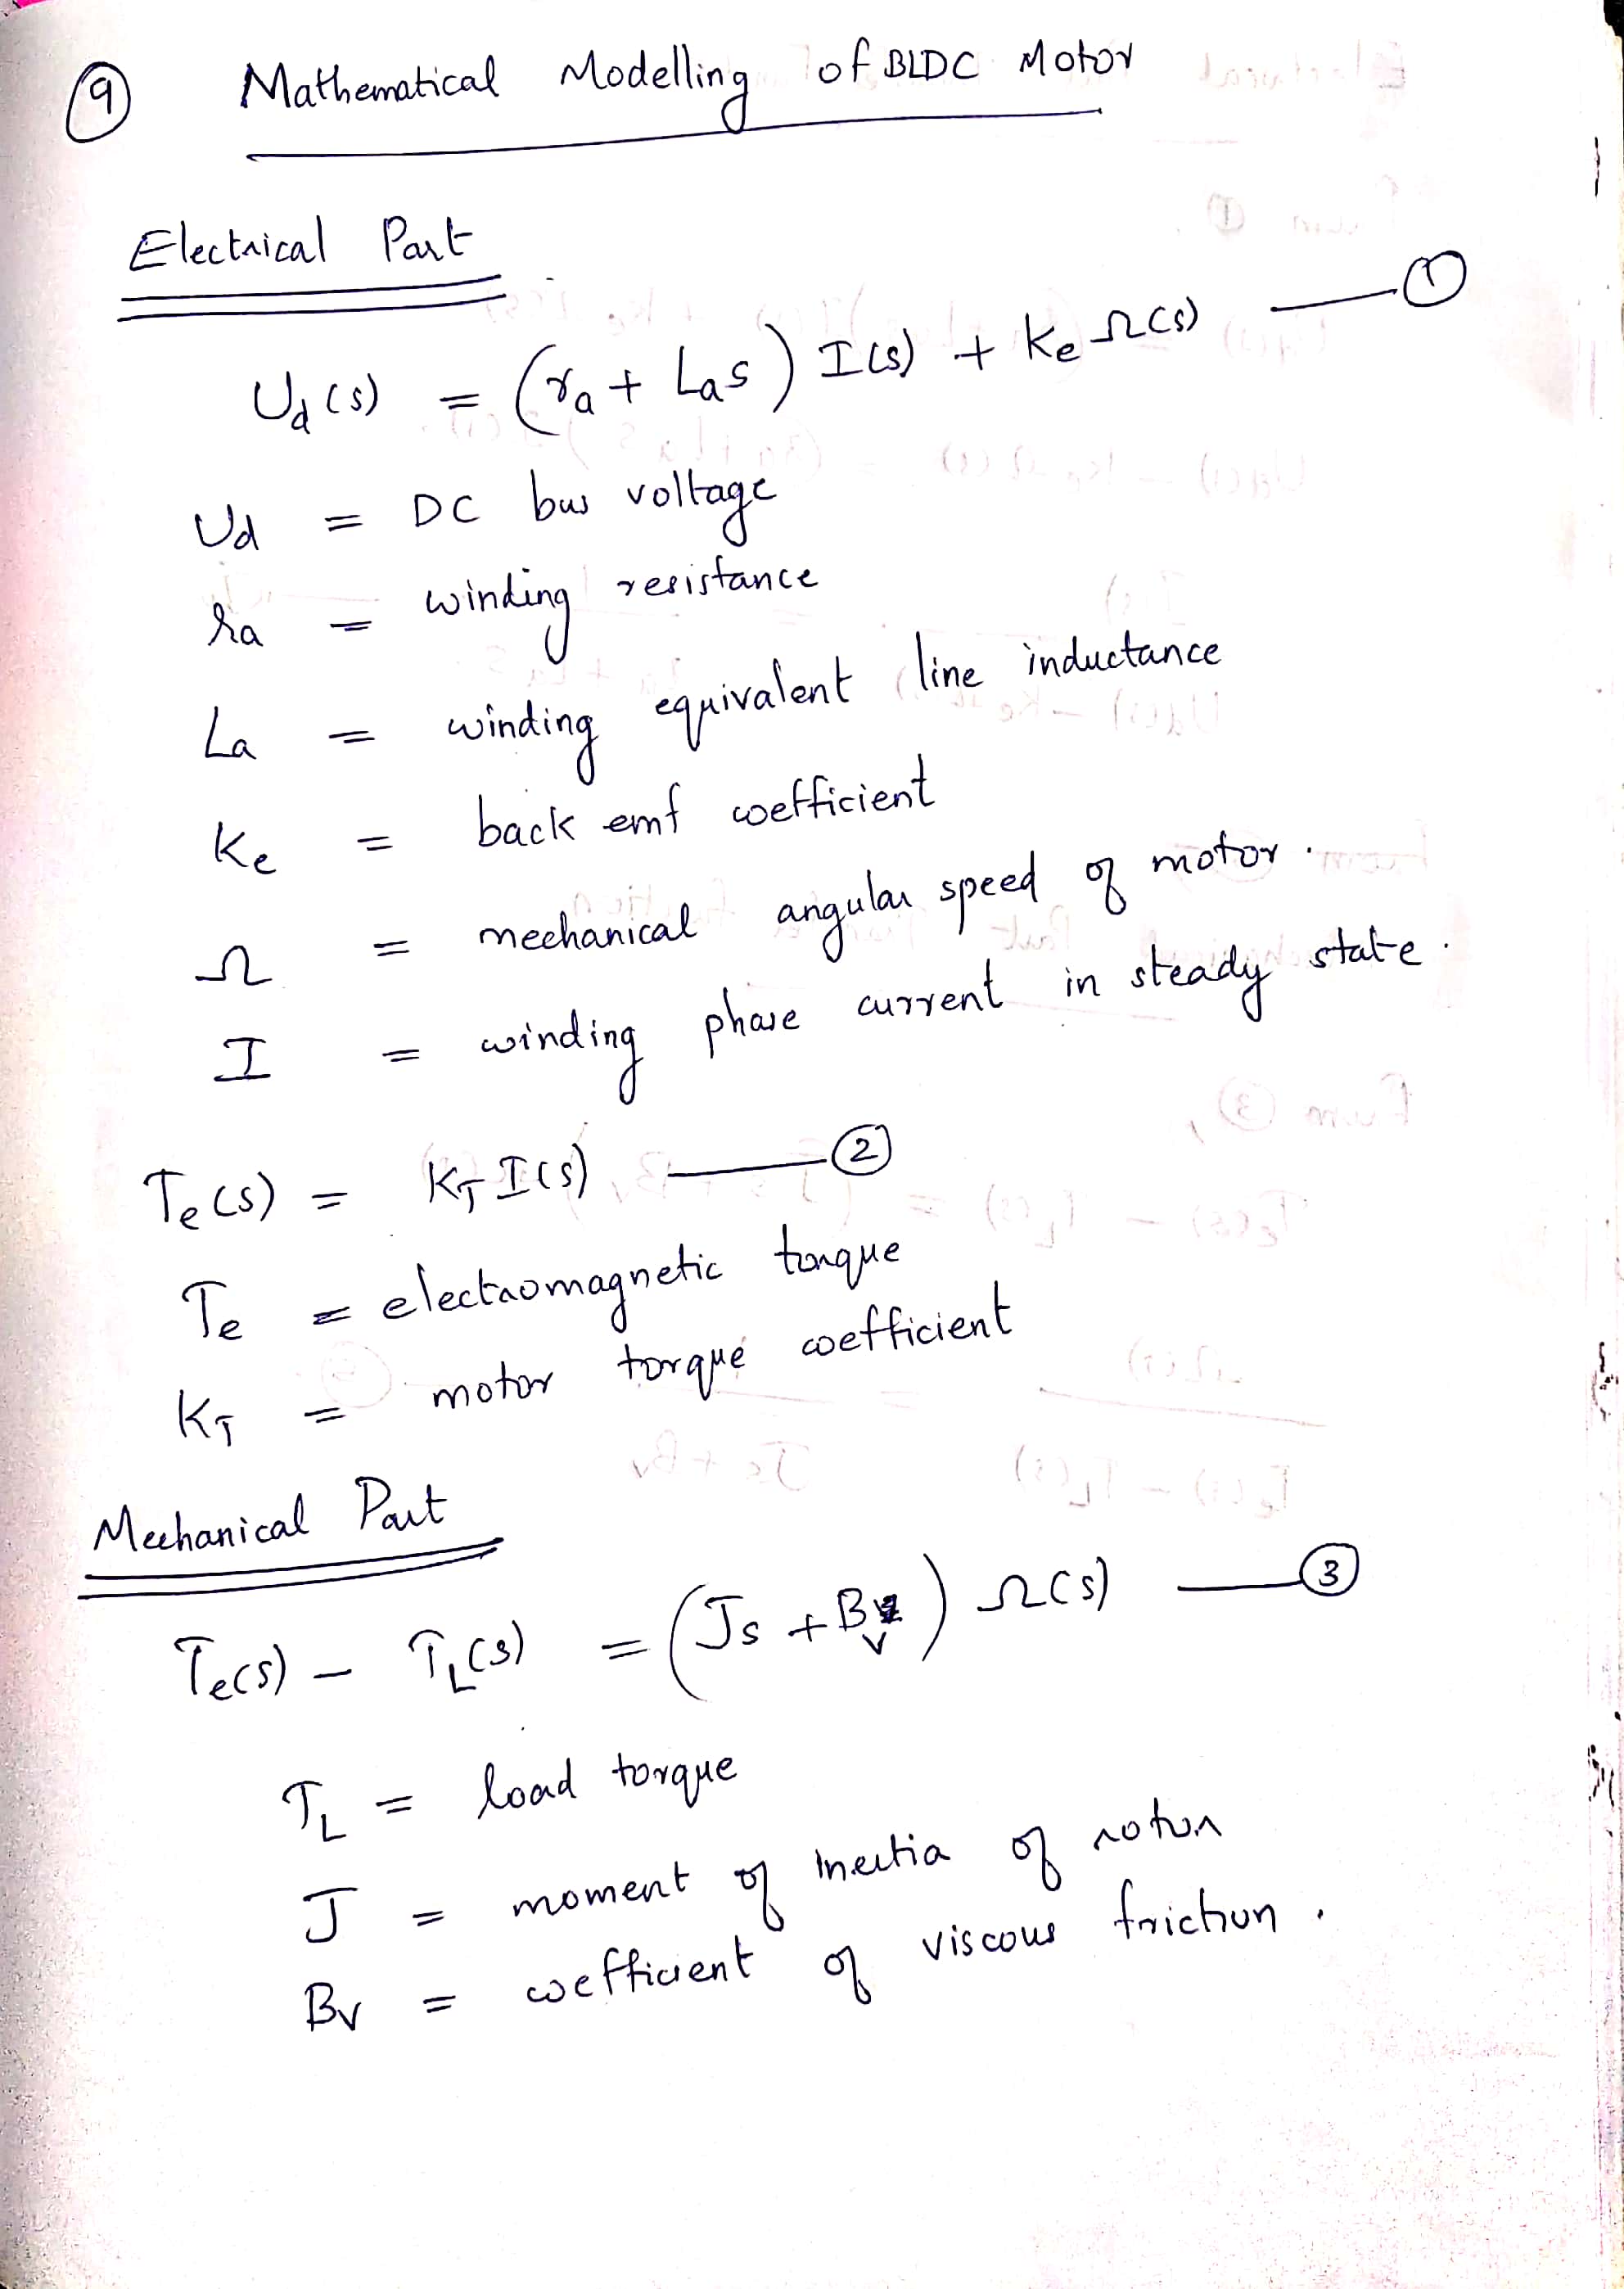 9 Mathematical Modelling of BLDC Motor
Electrical Part
Ud(s) = (ra + Las) I(s) + Ke Ω(s) — 1
Ud = DC bus voltage
ra = winding resistance
La = winding equivalent line inductance
Ke = back emf coefficient
Ω = mechanical angular speed of motor.
I = winding phase current in steady state.
Te(s) = KT I(s) — 2
Te = electromagnetic torque
KT = motor torque coefficient
Mechanical Part
Te(s) – TL(s) = (Js + Bv) Ω(s) — 3
TL = load torque
J = moment of inertia of rotor
Bv = coefficient of viscous friction.